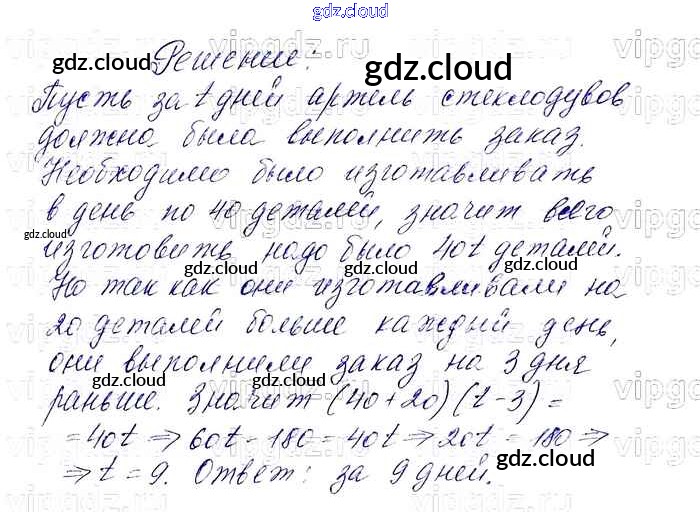 gdz.cloud
Решение:
Пусть за t дней артель стеклодувов
должна была выполнить заказ.
Необходимо было изготавливать
в день по 40 деталей, значит всего
изготовить надо было 40t деталей.
Но так как они изготавливали на
20 деталей больше каждый день,
они выполнили заказ на 3 дня
раньше. Значит (40+20)(t-3)=
=40t ⇒ 60t - 180 = 40t ⇒ 20t = 180 ⇒
⇒ t = 9. Ответ: за 9 дней.
gdz.cloud
gdz.cloud
gdz.cloud
gdz.cloud
gdz.cloud
gdz.cloud
gdz.cloud
gdz.cloud